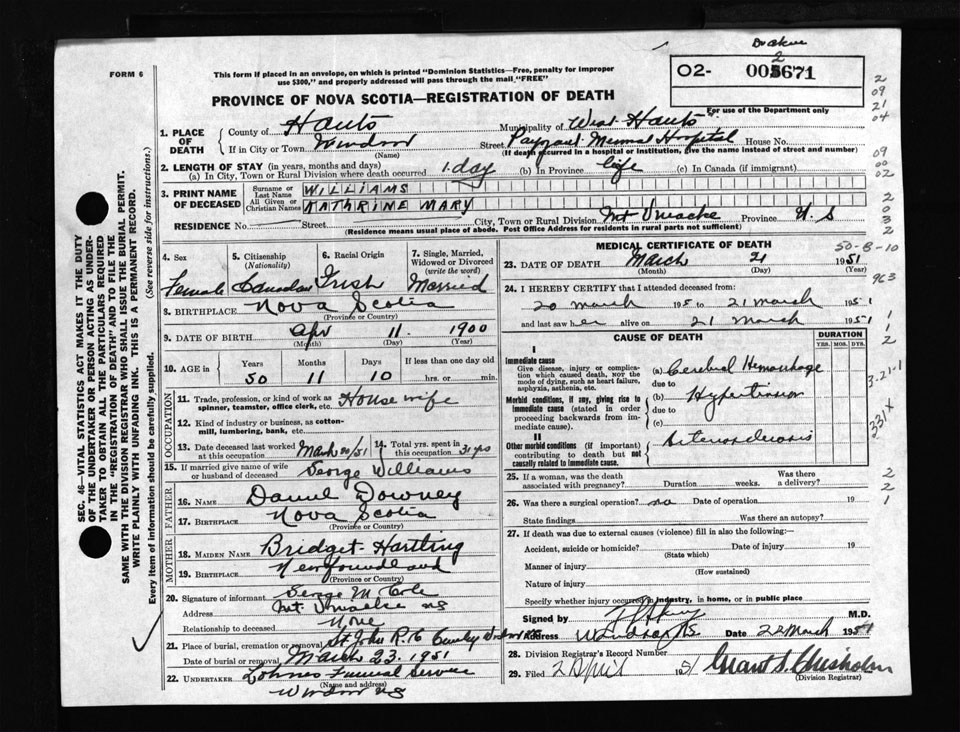 Broken
2
FORM 6
This form if placed in an envelope, on which is printed "Dominion Statistics—Free, penalty for improper use $300," and properly addressed will pass through the mail "FREE"
02- 005671
For use of the Department only
PROVINCE OF NOVA SCOTIA—REGISTRATION OF DEATH
1. PLACE OF DEATH { County of Hants Municipality of West Hants
If in City or Town Windsor (Name) Street Payzant Memorial Hospital House No.
(If death occurred in a hospital or institution, give the name instead of street and number)
2. LENGTH OF STAY (in years, months and days)
(a) In City, Town or Rural Division where death occurred 1 day (b) In Province life (c) In Canada (if immigrant)
3. PRINT NAME OF DECEASED { Surname or Last Name WILLIAMS
All Given or Christian Names KATHRINE MARY
RESIDENCE No. Street City, Town or Rural Division Mt Uniacke Province N S
(Residence means usual place of abode. Post Office Address for residents in rural parts not sufficient)
4. Sex Female
5. Citizenship (Nationality) Canadian
6. Racial Origin Irish
7. Single, Married, Widowed or Divorced (write the word) Married
8. BIRTHPLACE Nova Scotia
(Province or Country)
9. DATE OF BIRTH Apr 11 1900
(Month) (Day) (Year)
10. AGE in { Years 50 Months 11 Days 10 If less than one day old hrs. or min.
OCCUPATION
11. Trade, profession, or kind of work as spinner, teamster, office clerk, etc. Housewife
12. Kind of industry or business, as cotton-mill, lumbering, bank, etc.
13. Date deceased last worked at this occupation March 20/51 14. Total yrs. spent in this occupation 31 yrs
15. If married give name of wife or husband of deceased George Williams
FATHER
16. NAME Daniel Downey
17. BIRTHPLACE Nova Scotia
(Province or Country)
MOTHER
18. MAIDEN NAME Bridget Hartling
19. BIRTHPLACE Newfoundland
(Province or Country)
20. Signature of informant George M Cole
Address Mt Uniacke NS
Relationship to deceased None
21. Place of burial, cremation or removal St John R.C.
Date of burial or removal March 23, 1951
22. UNDERTAKER Lohnes Funeral Service
(Name and address)
Windsor NS
MEDICAL CERTIFICATE OF DEATH
23. DATE OF DEATH March 21 1951
(Month) (Day) (Year)
24. I HEREBY CERTIFY that I attended deceased from:
20 March 195 to 21 March 1951
and last saw her alive on 21 March 1951
CAUSE OF DEATH
DURATION
YRS. MOS. DYS.
I
Immediate cause
Give disease, injury or complication which caused death, NOR the mode of dying, such as heart failure, asphyxia, asthenia, etc.
(a) Cerebral Hemorrhage
due to
Morbid conditions, if any, giving rise to immediate cause (stated in order proceeding backwards from immediate cause).
(b) Hypertension
due to
(c)
II
Other morbid conditions (if important) contributing to death but not causally related to immediate cause.
Arteriosclerosis
25. If a woman, was the death associated with pregnancy? Duration weeks. Was there a delivery?
26. Was there a surgical operation? no Date of operation 19
State findings Was there an autopsy?
27. If death was due to external causes (violence) fill in also the following:—
Accident, suicide or homicide? Date of injury 19
(State which)
Manner of injury
(How sustained)
Nature of injury
Specify whether injury occurred in industry, in home, or in public place
Signed by M.D.
Address Windsor N.S. Date 22 March 1951
28. Division Registrar's Record Number
29. Filed 2 April 1951 Grant S. Chisholm
(Division Registrar)
SEC. 46—VITAL STATISTICS ACT MAKES IT THE DUTY OF THE UNDERTAKER OR PERSON ACTING AS UNDERTAKER TO OBTAIN ALL THE PARTICULARS REQUIRED IN THE "REGISTRATION OF DEATH" AND TO FILE THE SAME WITH THE DIVISION REGISTRAR WHO SHALL ISSUE THE BURIAL PERMIT.
WRITE PLAINLY WITH UNFADING INK. THIS IS A PERMANENT RECORD.
Every item of information should be carefully supplied. (See reverse side for instructions.)
2
09
21
04
09
00
02
2
0
3
2
50-8-10
963
1
1
2
3-21-1
331X
2
2
1